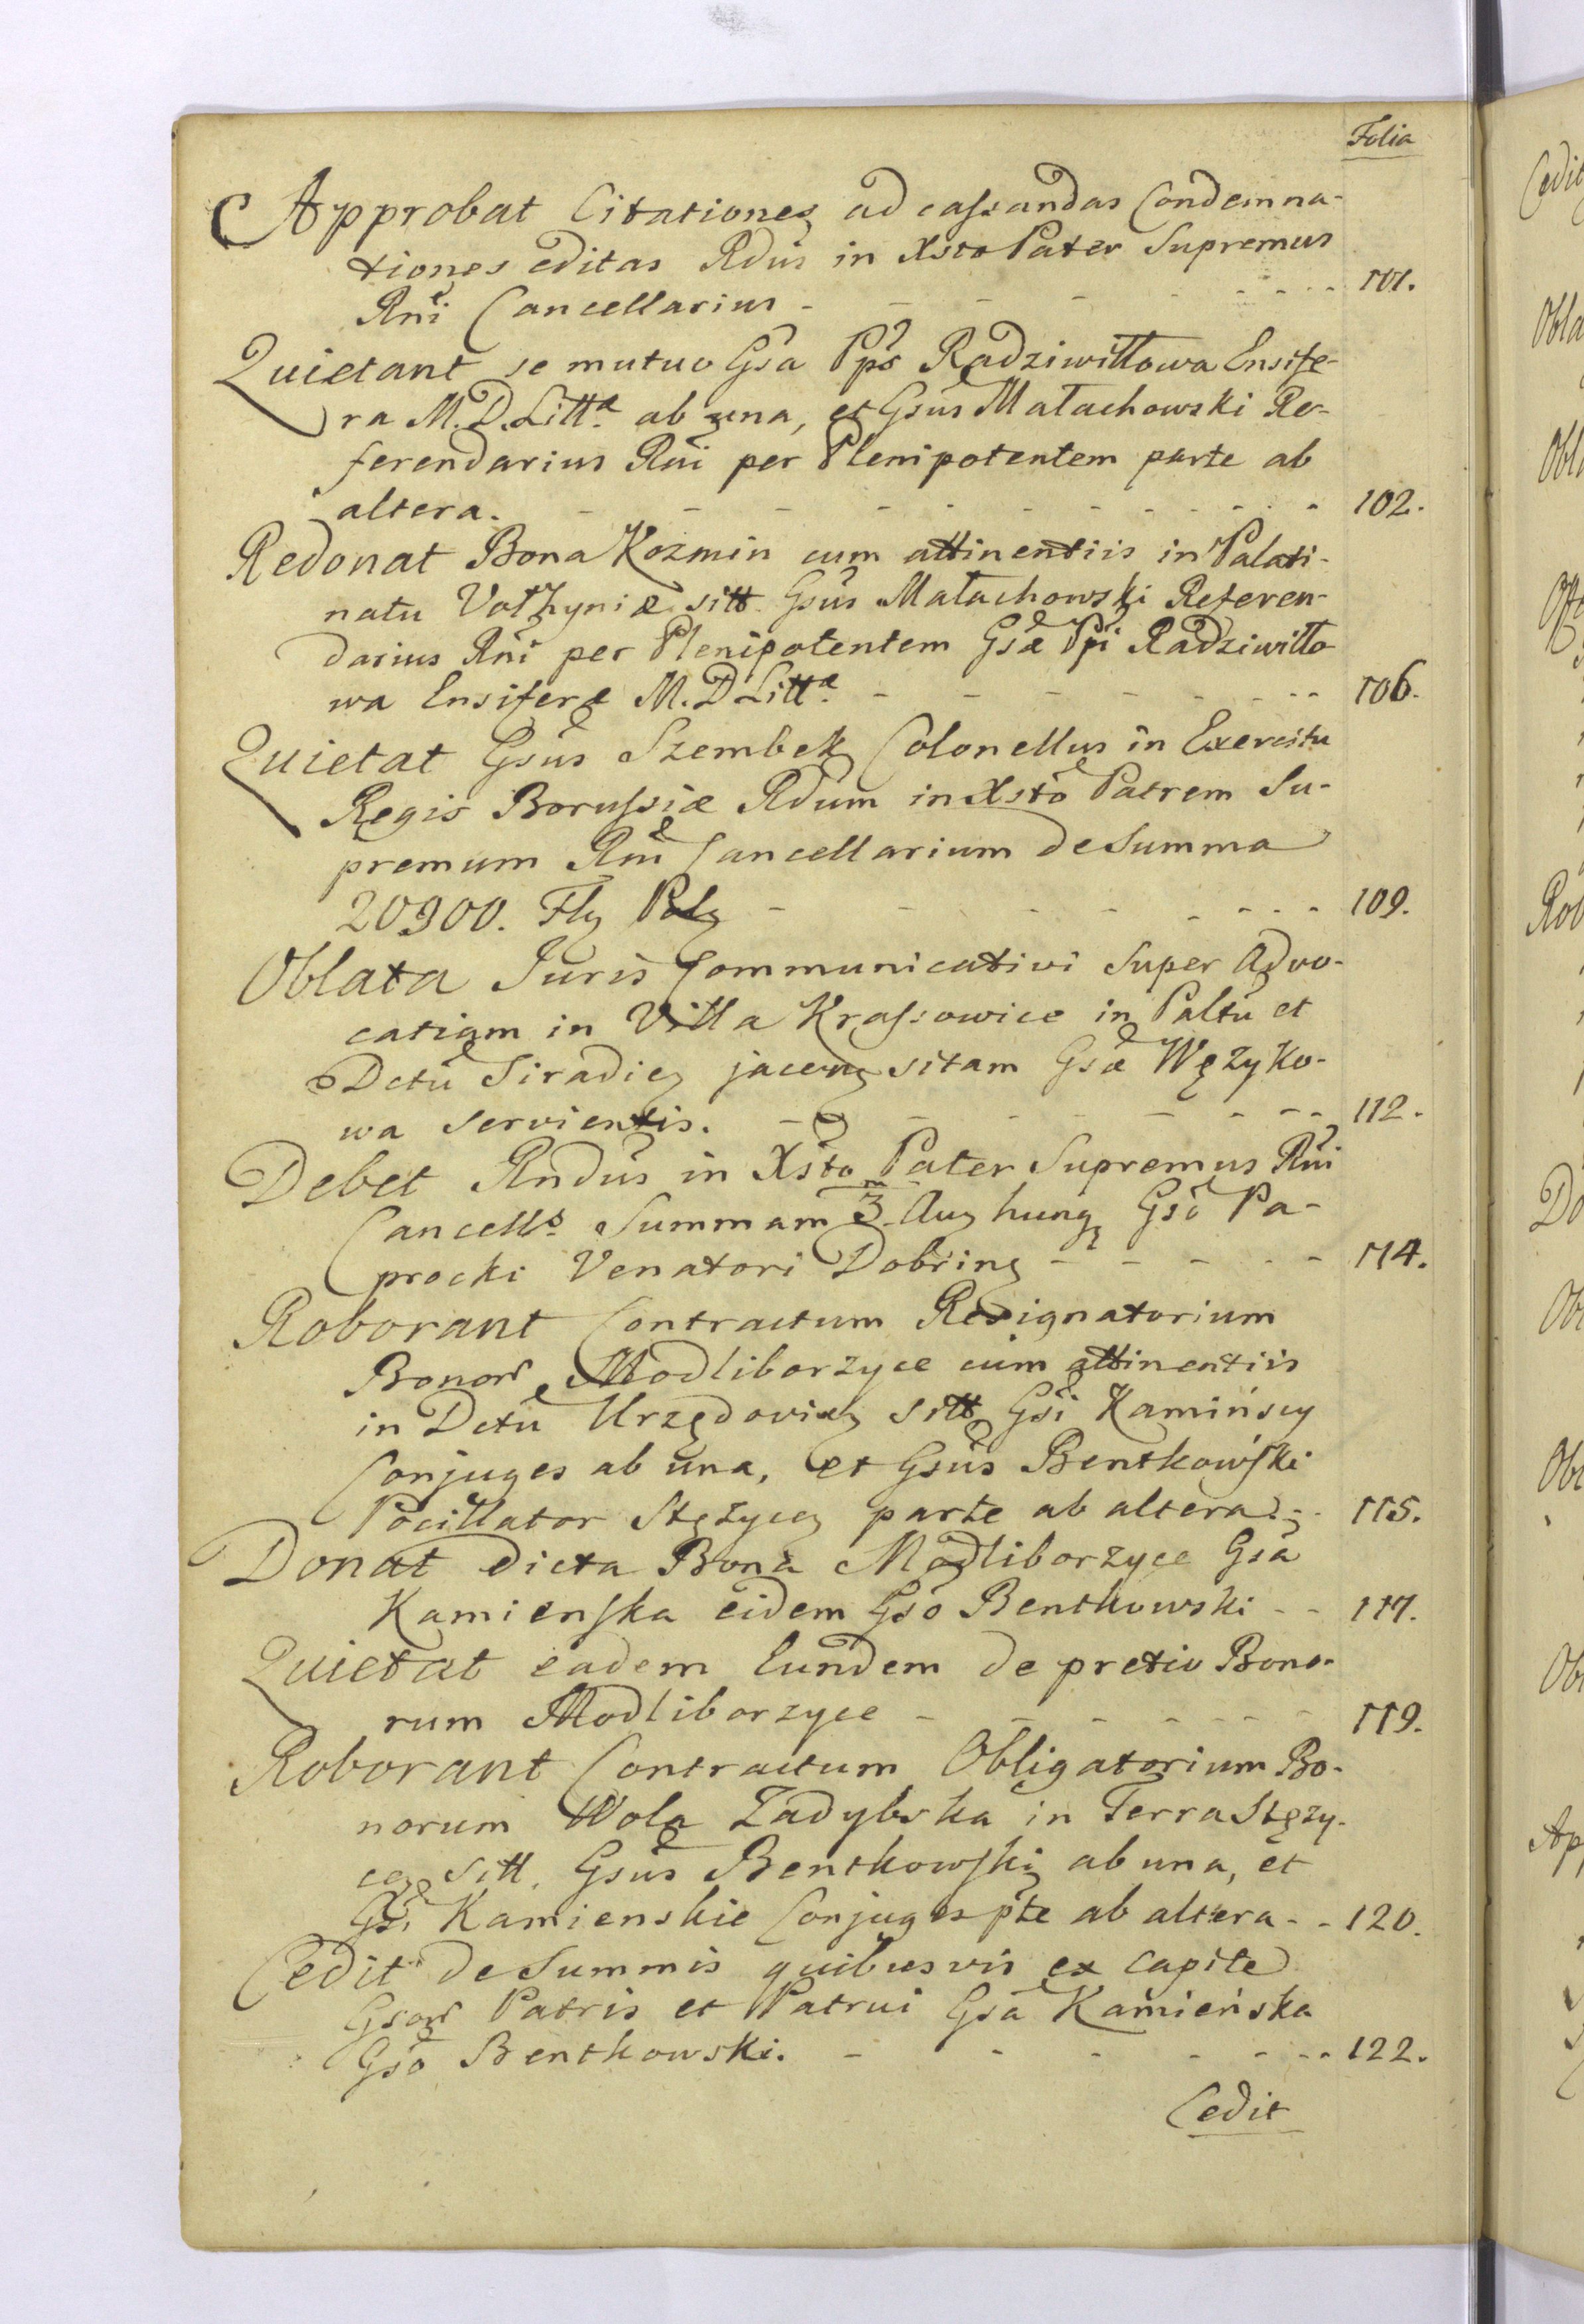 Folia
Approbat Citationes ad cassandas Condemna-
tiones editas Rdus in Xsto Pater Supremus
Rni Cancellarius - - - - - - - 101.
Quietant se mutuo Gsa Pps Radziwiłłowa Ensife-
ra M. D. Litt.æ ab una, et Gsus Małachowski Re-
ferendarius Rni per Plenipotentem parte ab
altera. - - - - - - - - - - - 102.
Redonat Bona Kozmin cum attinentiis in Palati-
natu Vołhyniæ sitt. Gsus Małachowski Referen-
darius Rni per Plenipotentem Gsæ Ppi Radziwiłło
wa Ensiferæ M. D Litt.æ - - - - - - - - 106.
Quietat Gsus Szembek Colonellus in Exercitu
Regis Borussiæ Rdum in Xsto Patrem Su-
premum Rni Cancellarium de Summa
20900. Flz Polz - - - - - - - - 109.
Oblata Juris Communicativi super Advo-
catiam in Villa Krassowice in Paltu et
Dctu Siradiez jacenz sitam Gsæ Wężyko-
wa servientis. - - - - - - - - - 112.
Debet Rndus in Xsto Pater Supremus Rni
Cancells Summam 3/m Auz hung Gso Pa-
procki Venatori Dobrinz - - - - - 114.
Roborant Contractum Resignatorium
Bonor Modliborzyce cum attinentiis
in Dctu Urzędoviez sitt Gsi Kamińscy
Conjuges ab una, et Gsus Bentkowski
Pocillator Stężycz parte ab altera - - 115.
Donat dicta Bona Modliborzyce Gsa
Kamienska eidem Gso Bentkowski - - 117.
Quietat eadem Eundem de pretio Bono-
rum Modliborzyce - - - - - - - 119.
Roborant Contractum Obligatorium Bo-
norum Wola Zadybska in Terra Stęzy-
cz sitt. Gsus Bentkowski ab una, et
Gsi Kamienskie Conjuges pte ab altera - - 120.
Cedit de Summis quibusvis ex Capite
Gsor Patris et Patrui Gsa Kamieńska
Gso Bentkowski. - - - - - - - 122.
Cedit